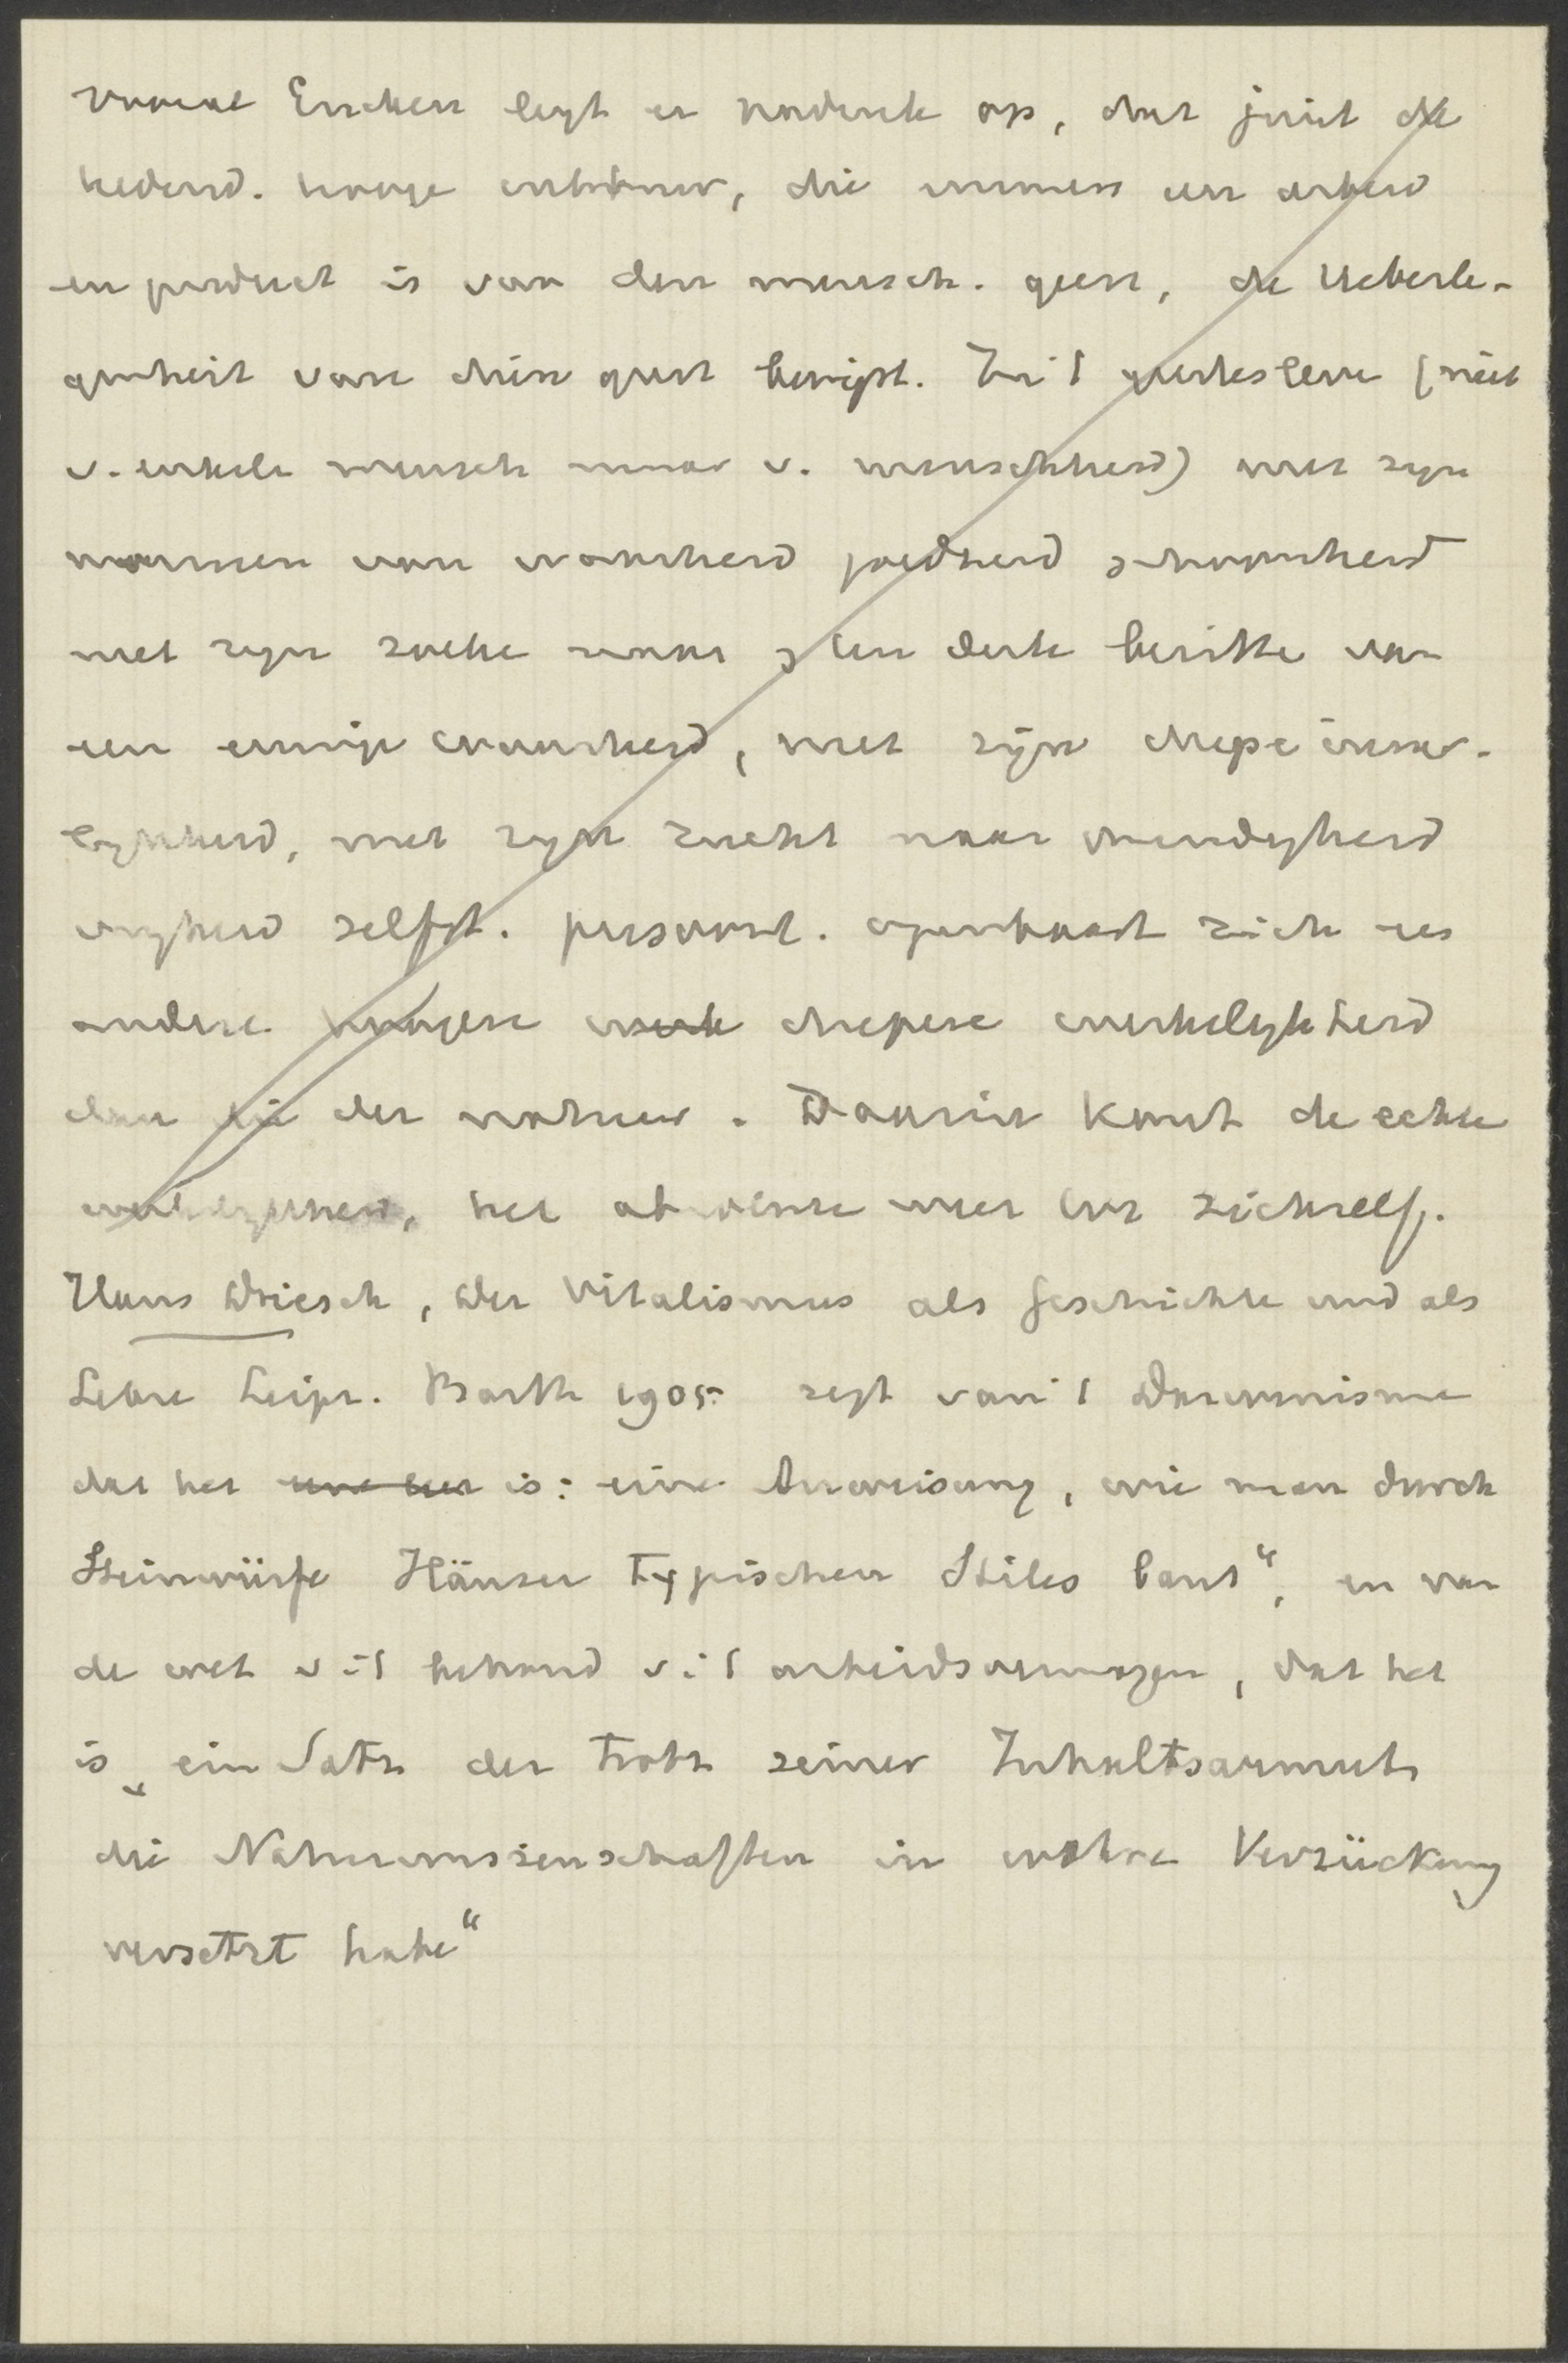 Vooral Eucken legt er nadruk op, dat juist de
hedend. hooge cultuur, die immers een arbeid
en product is van den mensch. geest, de Ueberle-
genheit van dien geest bewijst. In 't geestesleven (niet
v. enkele mensch maar v. menschheid) met zijn
normen van waarheid goedheid schoonheid
met zijn zoeke naar en ten deele bezitte van
een eeuwige waarheid, met zijn diepe inner-
lijkheid, met zijn zucht naar oneindigheid
vrijheid zelfst. persoonl. openbaart zich een
andere hoogere werk diepere werkelijkheid
dan die der natuur. Daarin komt de echte
werkelijkheid, het absolute meer tot zichzelf.
Hans Driesch, Der Vitalismus als Geschichte und als
Lehre Leipz. Barth 1905 zegt van 't Darwinisme
dat het is: eine Anweisung, wie man durch
Steinwürfe Häuser typischen Stiles baut", en van
de wet v 't behoud v. 't arbeidsvermogen, dat het
is „ein Satz der trotz seiner Inhaltsarmut
die Naturwissenschaften in wahre Verzückung
versetzt habe"